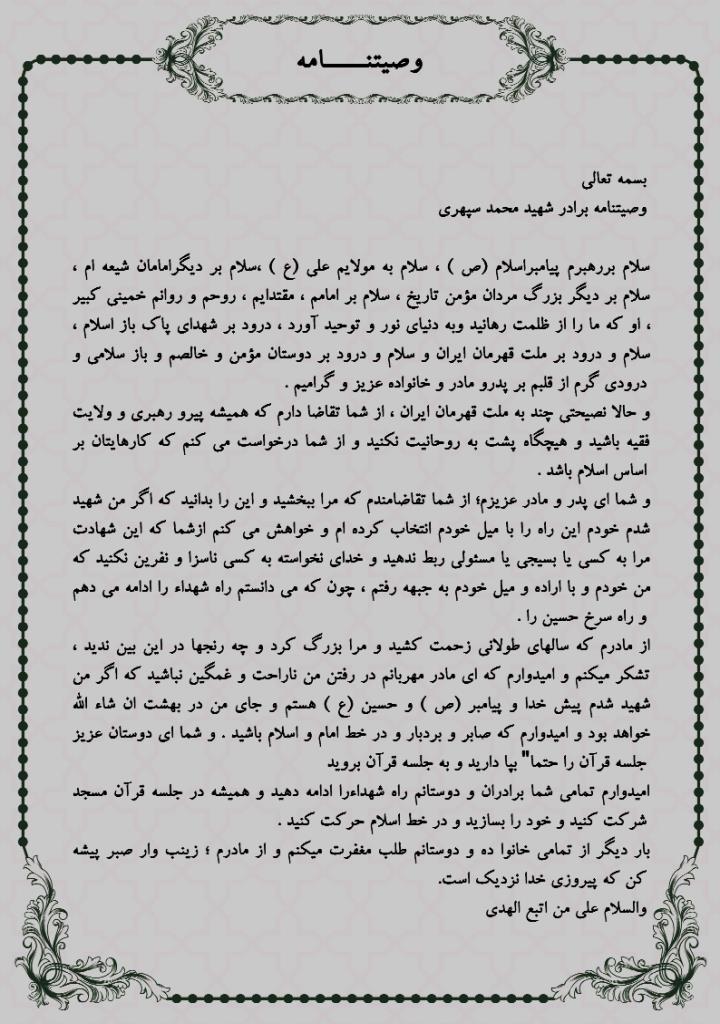 وصیتنـــــامه
بسمه تعالی
وصیتنامه برادر شهید محمد سپهری
سلام بررهبرم پیامبراسلام (ص ) ، سلام به مولایم علی (ع ) ،سلام بر دیگرامامان شیعه ام ،
سلام بر دیگر بزرگ مردان مؤمن تاریخ ، سلام بر امامم ، مقتدایم ، روحم و روانم خمینی کبیر
، او که ما را از ظلمت رهانید وبه دنیای نور و توحید آورد ، درود بر شهدای پاک باز اسلام ،
سلام و درود بر ملت قهرمان ایران و سلام و درود بر دوستان مؤمن و خالصم و باز سلامی و
درودی گرم از قلبم بر پدرو مادر و خانواده عزیز و گرامیم .
و حالا نصیحتی چند به ملت قهرمان ایران ، از شما تقاضا دارم که همیشه پیرو رهبری و ولایت
فقیه باشید و هیچگاه پشت به روحانیت نکنید و از شما درخواست می کنم که کارهایتان بر
اساس اسلام باشد .
و شما ای پدر و مادر عزیزم؛ از شما تقاضامندم که مرا ببخشید و این را بدانید که اگر من شهید
شدم خودم این راه را با میل خودم انتخاب کرده ام و خواهش می کنم ازشما که این شهادت
مرا به کسی یا بسیجی یا مسئولی ربط ندهید و خدای نخواسته به کسی ناسزا و نفرین نکنید که
من خودم و با اراده و میل خودم به جبهه رفتم ، چون که می دانستم راه شهداء را ادامه می دهم
و راه سرخ حسین را .
از مادرم که سالهای طولانی زحمت کشید و مرا بزرگ کرد و چه رنجها در این بین ندید ،
تشکر میکنم و امیدوارم که ای مادر مهربانم در رفتن من ناراحت و غمگین نباشید که اگر من
شهید شدم پیش خدا و پیامبر (ص ) و حسین (ع ) هستم و جای من در بهشت ان شاء الله
خواهد بود و امیدوارم که صابر و بردبار و در خط امام و اسلام باشید . و شما ای دوستان عزیز
جلسه قرآن را حتما" بپا دارید و به جلسه قرآن بروید
امیدوارم تمامی شما برادران و دوستانم راه شهداءرا ادامه دهید و همیشه در جلسه قرآن مسجد
شرکت کنید و خود را بسازید و در خط اسلام حرکت کنید .
بار دیگر از تمامی خانوا ده و دوستانم طلب مغفرت میکنم و از مادرم ؛ زینب وار صبر پیشه
کن که پیروزی خدا نزدیک است.
والسلام علی من اتبع الهدی